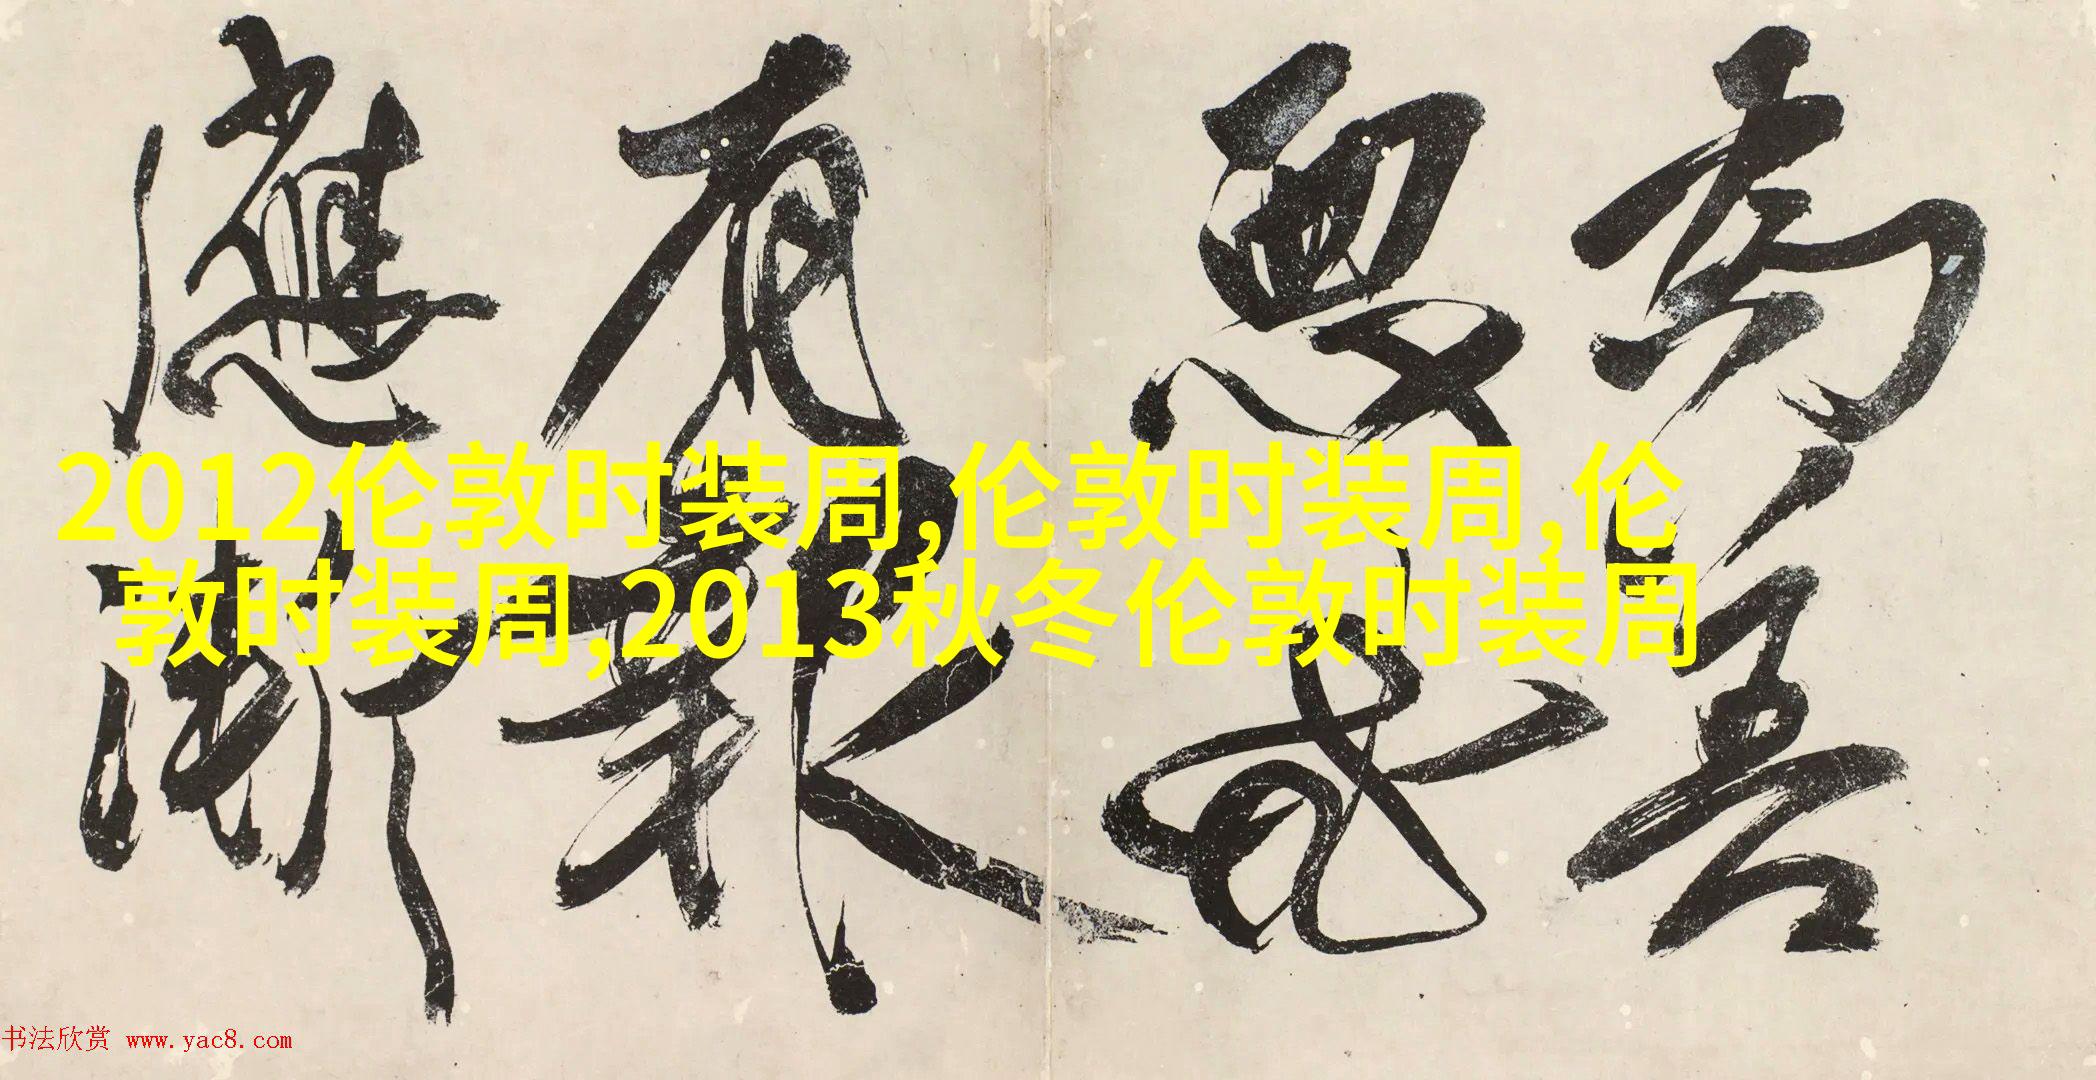 為善
惡或
有報
應漸
2012伦敦时装周,伦敦时装周,伦
敦时装周,2013秋冬伦敦时装周
书法欣赏 www.yac8.com